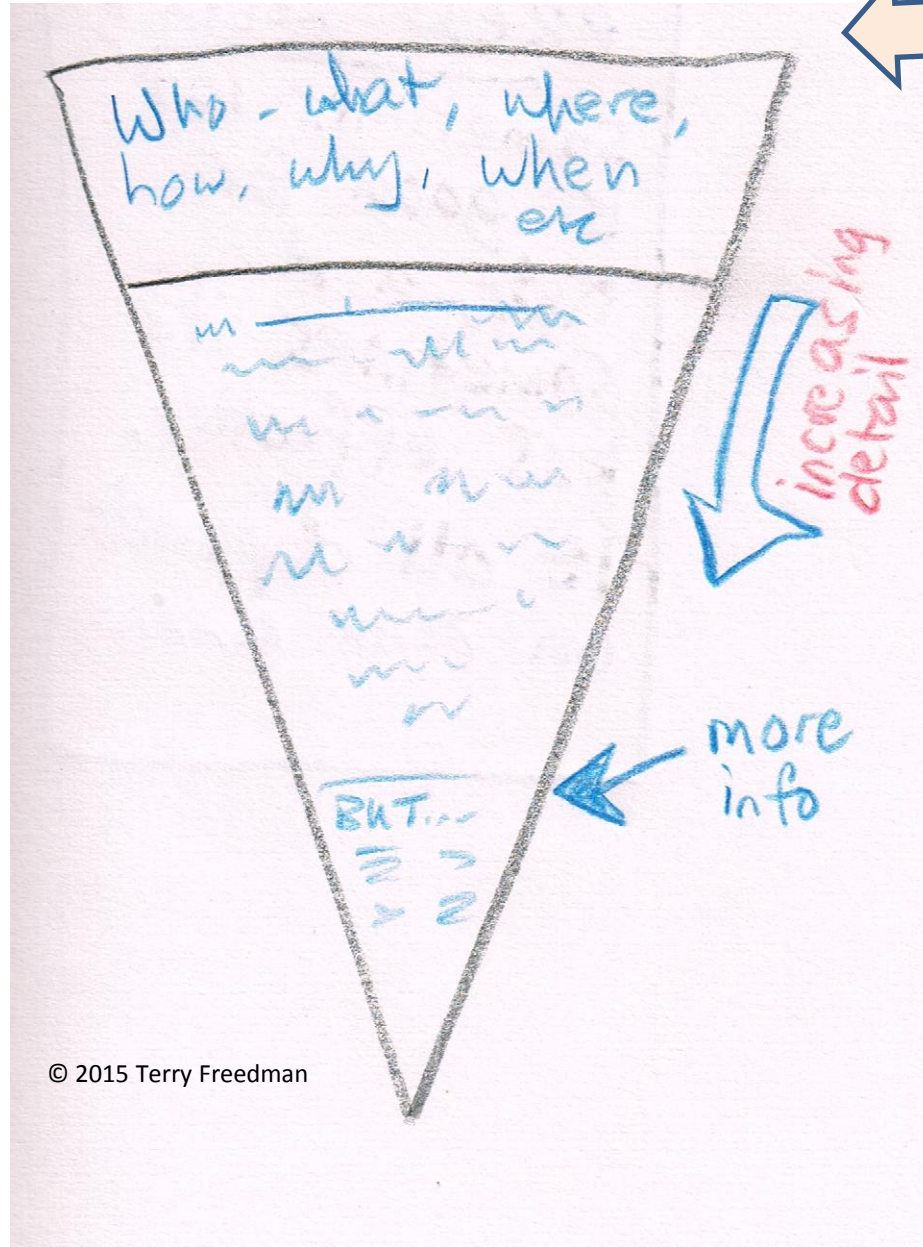 Who - what, where,
how, why, when
etc
increasing
detail
more
info
BUT...
© 2015 Terry Freedman